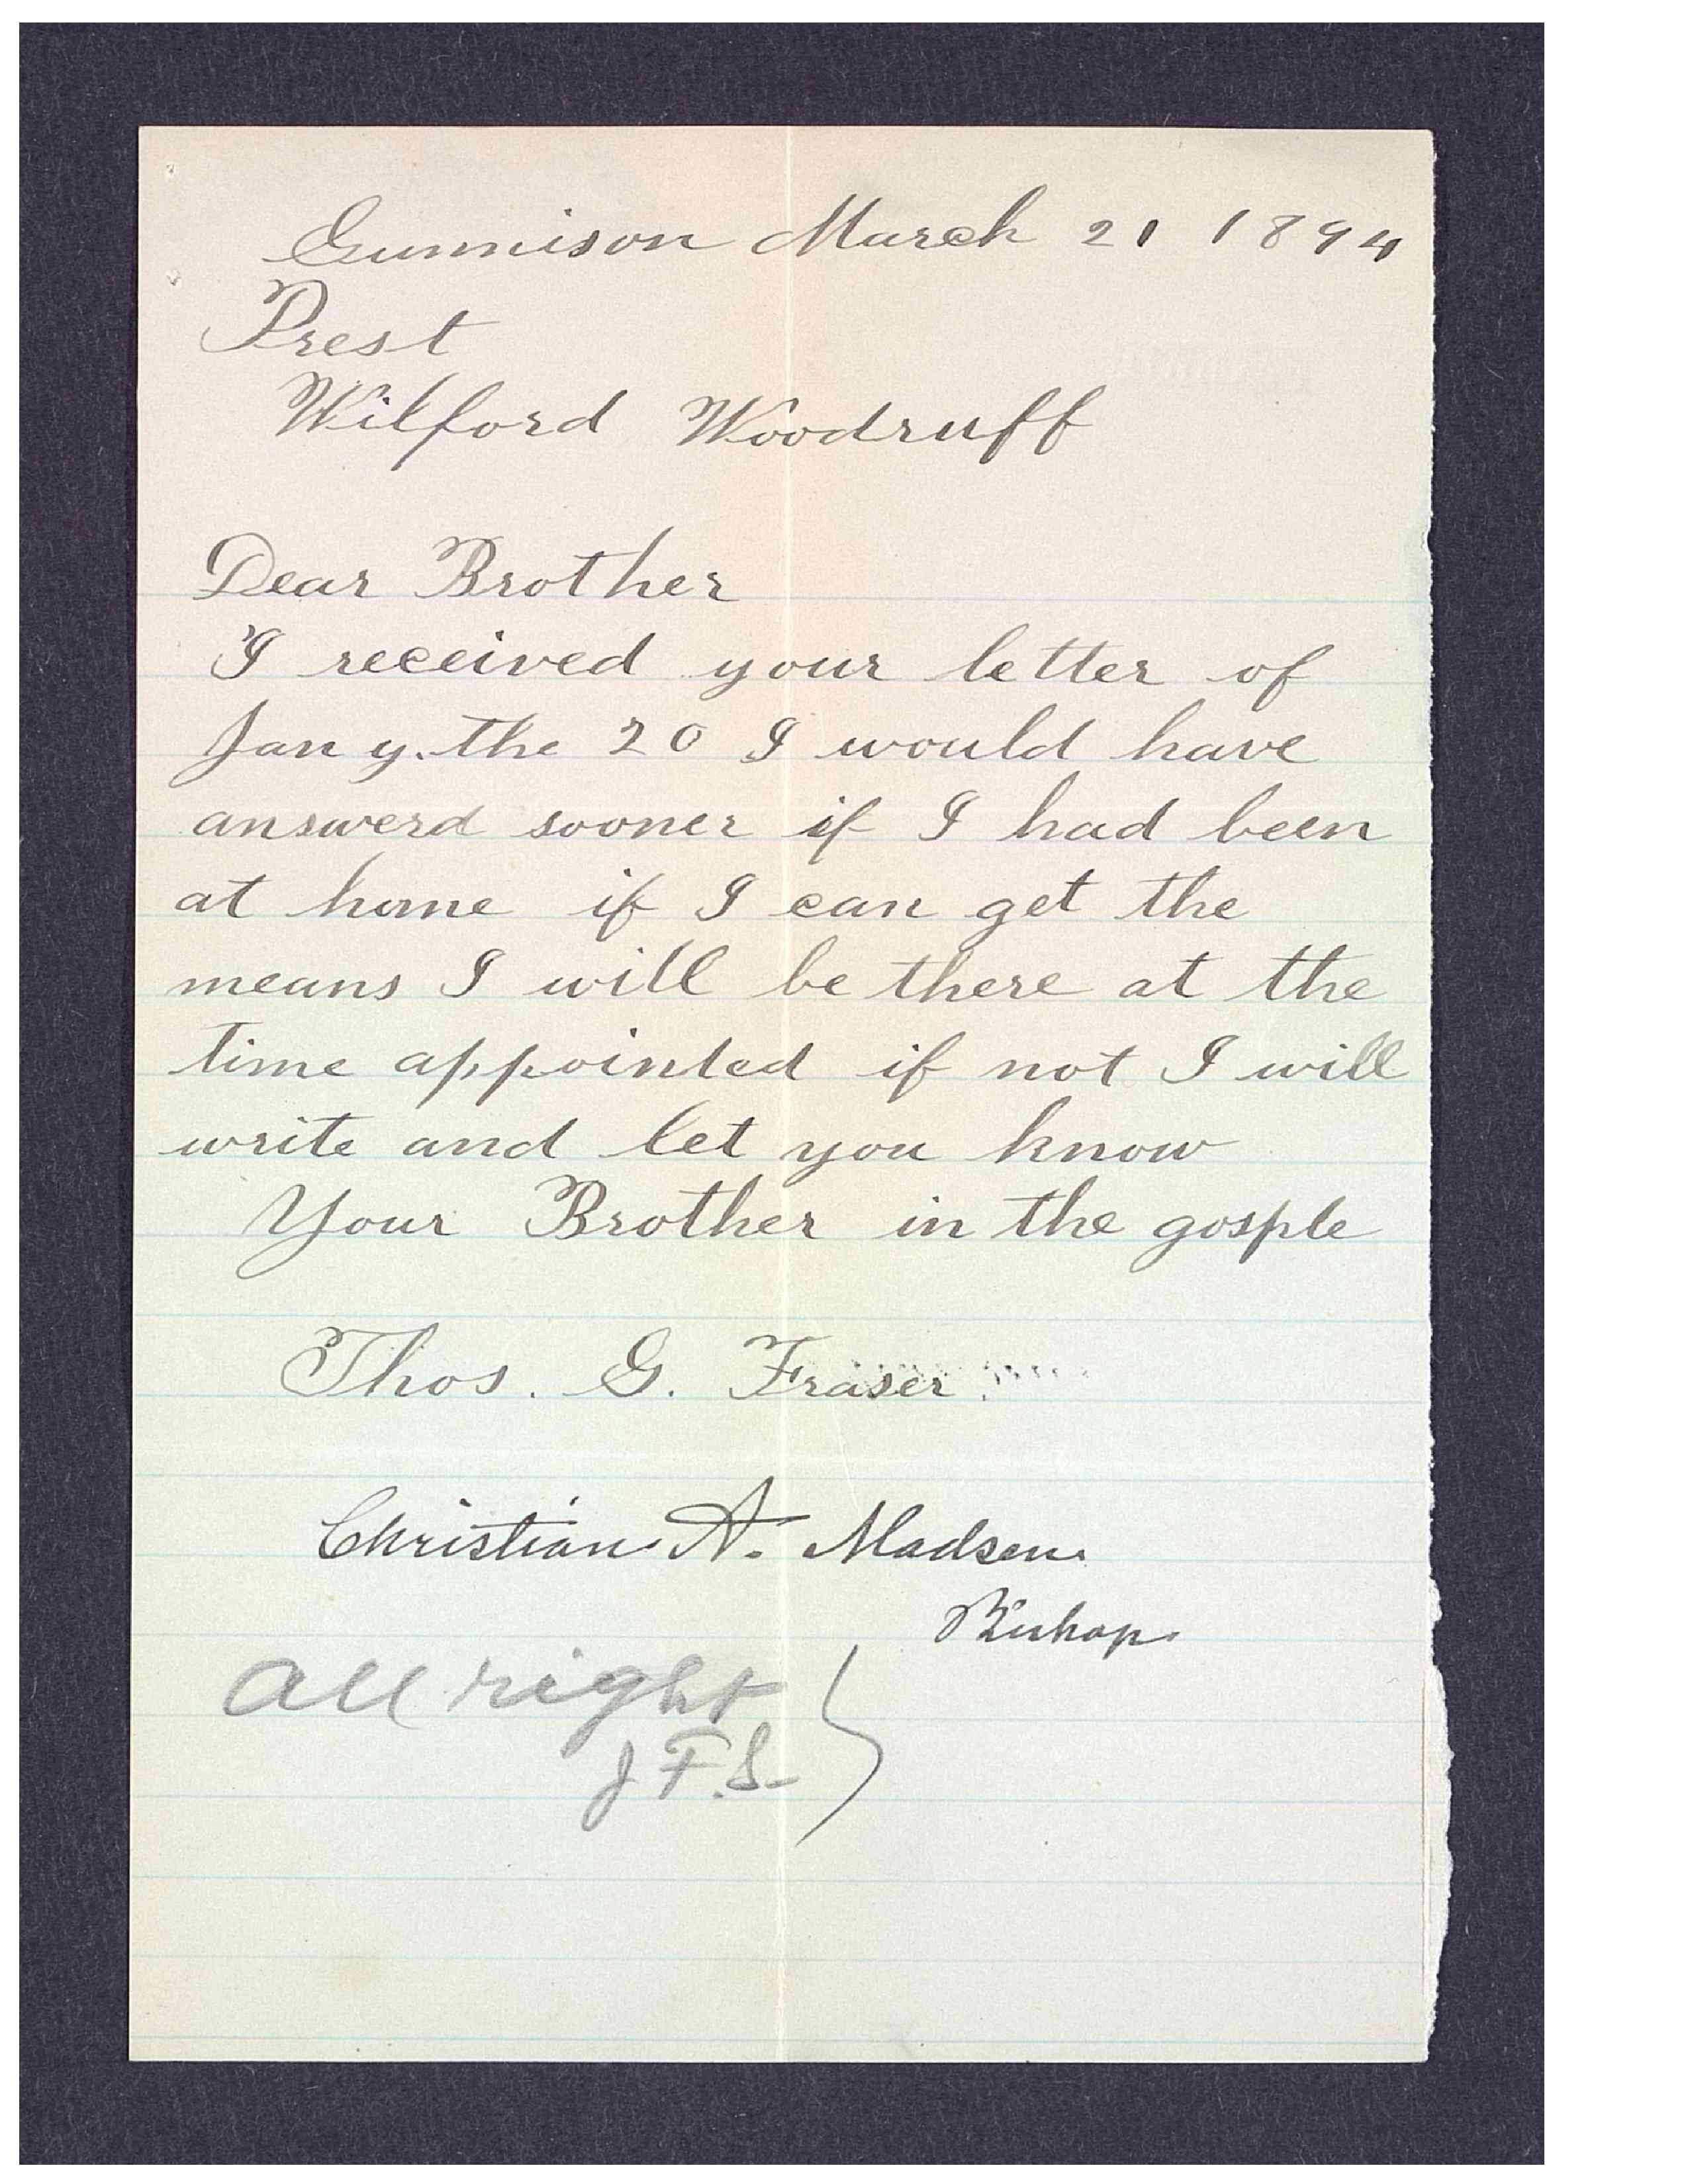 Gunnison March 21 1894
Prest
Wilford Woodruff
Dear Brother
I received your letter of
Jany. the 20 I would have
answerd sooner if I had been
at home if I can get the
means I will be there at the
time appointed if not I will
write and let you know
Your Brother in the gosple
Thos. G. Fraser
Christian A. Madsen
Bishop
all right
J F.S.